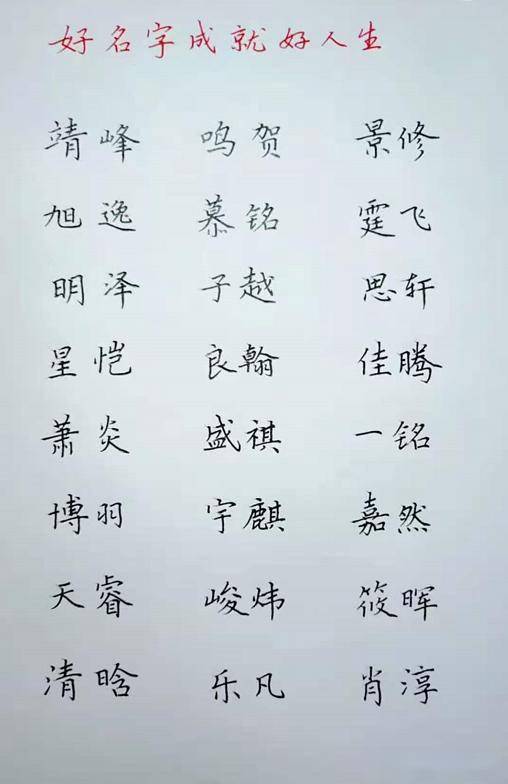 好名字成就好人生
靖峰 鸣贺 景修
旭逸 慕铭 霆飞
明泽 子越 思轩
星恺 良翰 佳腾
萧炎 盛祺 一铭
博羽 宇麒 嘉然
天睿 峻炜 筱晖
清晗 乐凡 肖淳